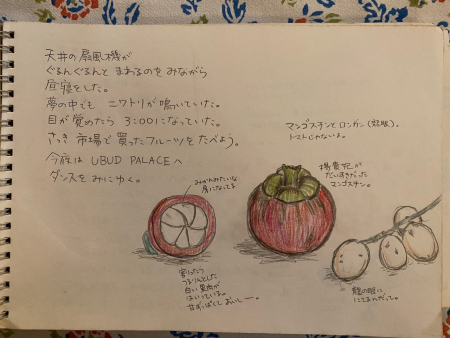 天井の扇風機が
ぐるんぐるんと まわるのを みながら
昼寝をした。
夢の中でも ニワトリが鳴いていた。
目が覚めたら 3:00になっていた。
さっき 市場で買ったフルーツをたべよう。
今夜は UBUD PALACEへ
ダンスを みにゆく。
マンゴスチンとロンガン
トマトじゃないよ。
みかんみたいな
房になってる
楊貴妃が
だいすきだった
マンゴスチン。
割ったら
つるりんとした
白い果肉が
はいっている。
甘ずっぱくて おいしーー。
龍の眼に
にてるんだって。